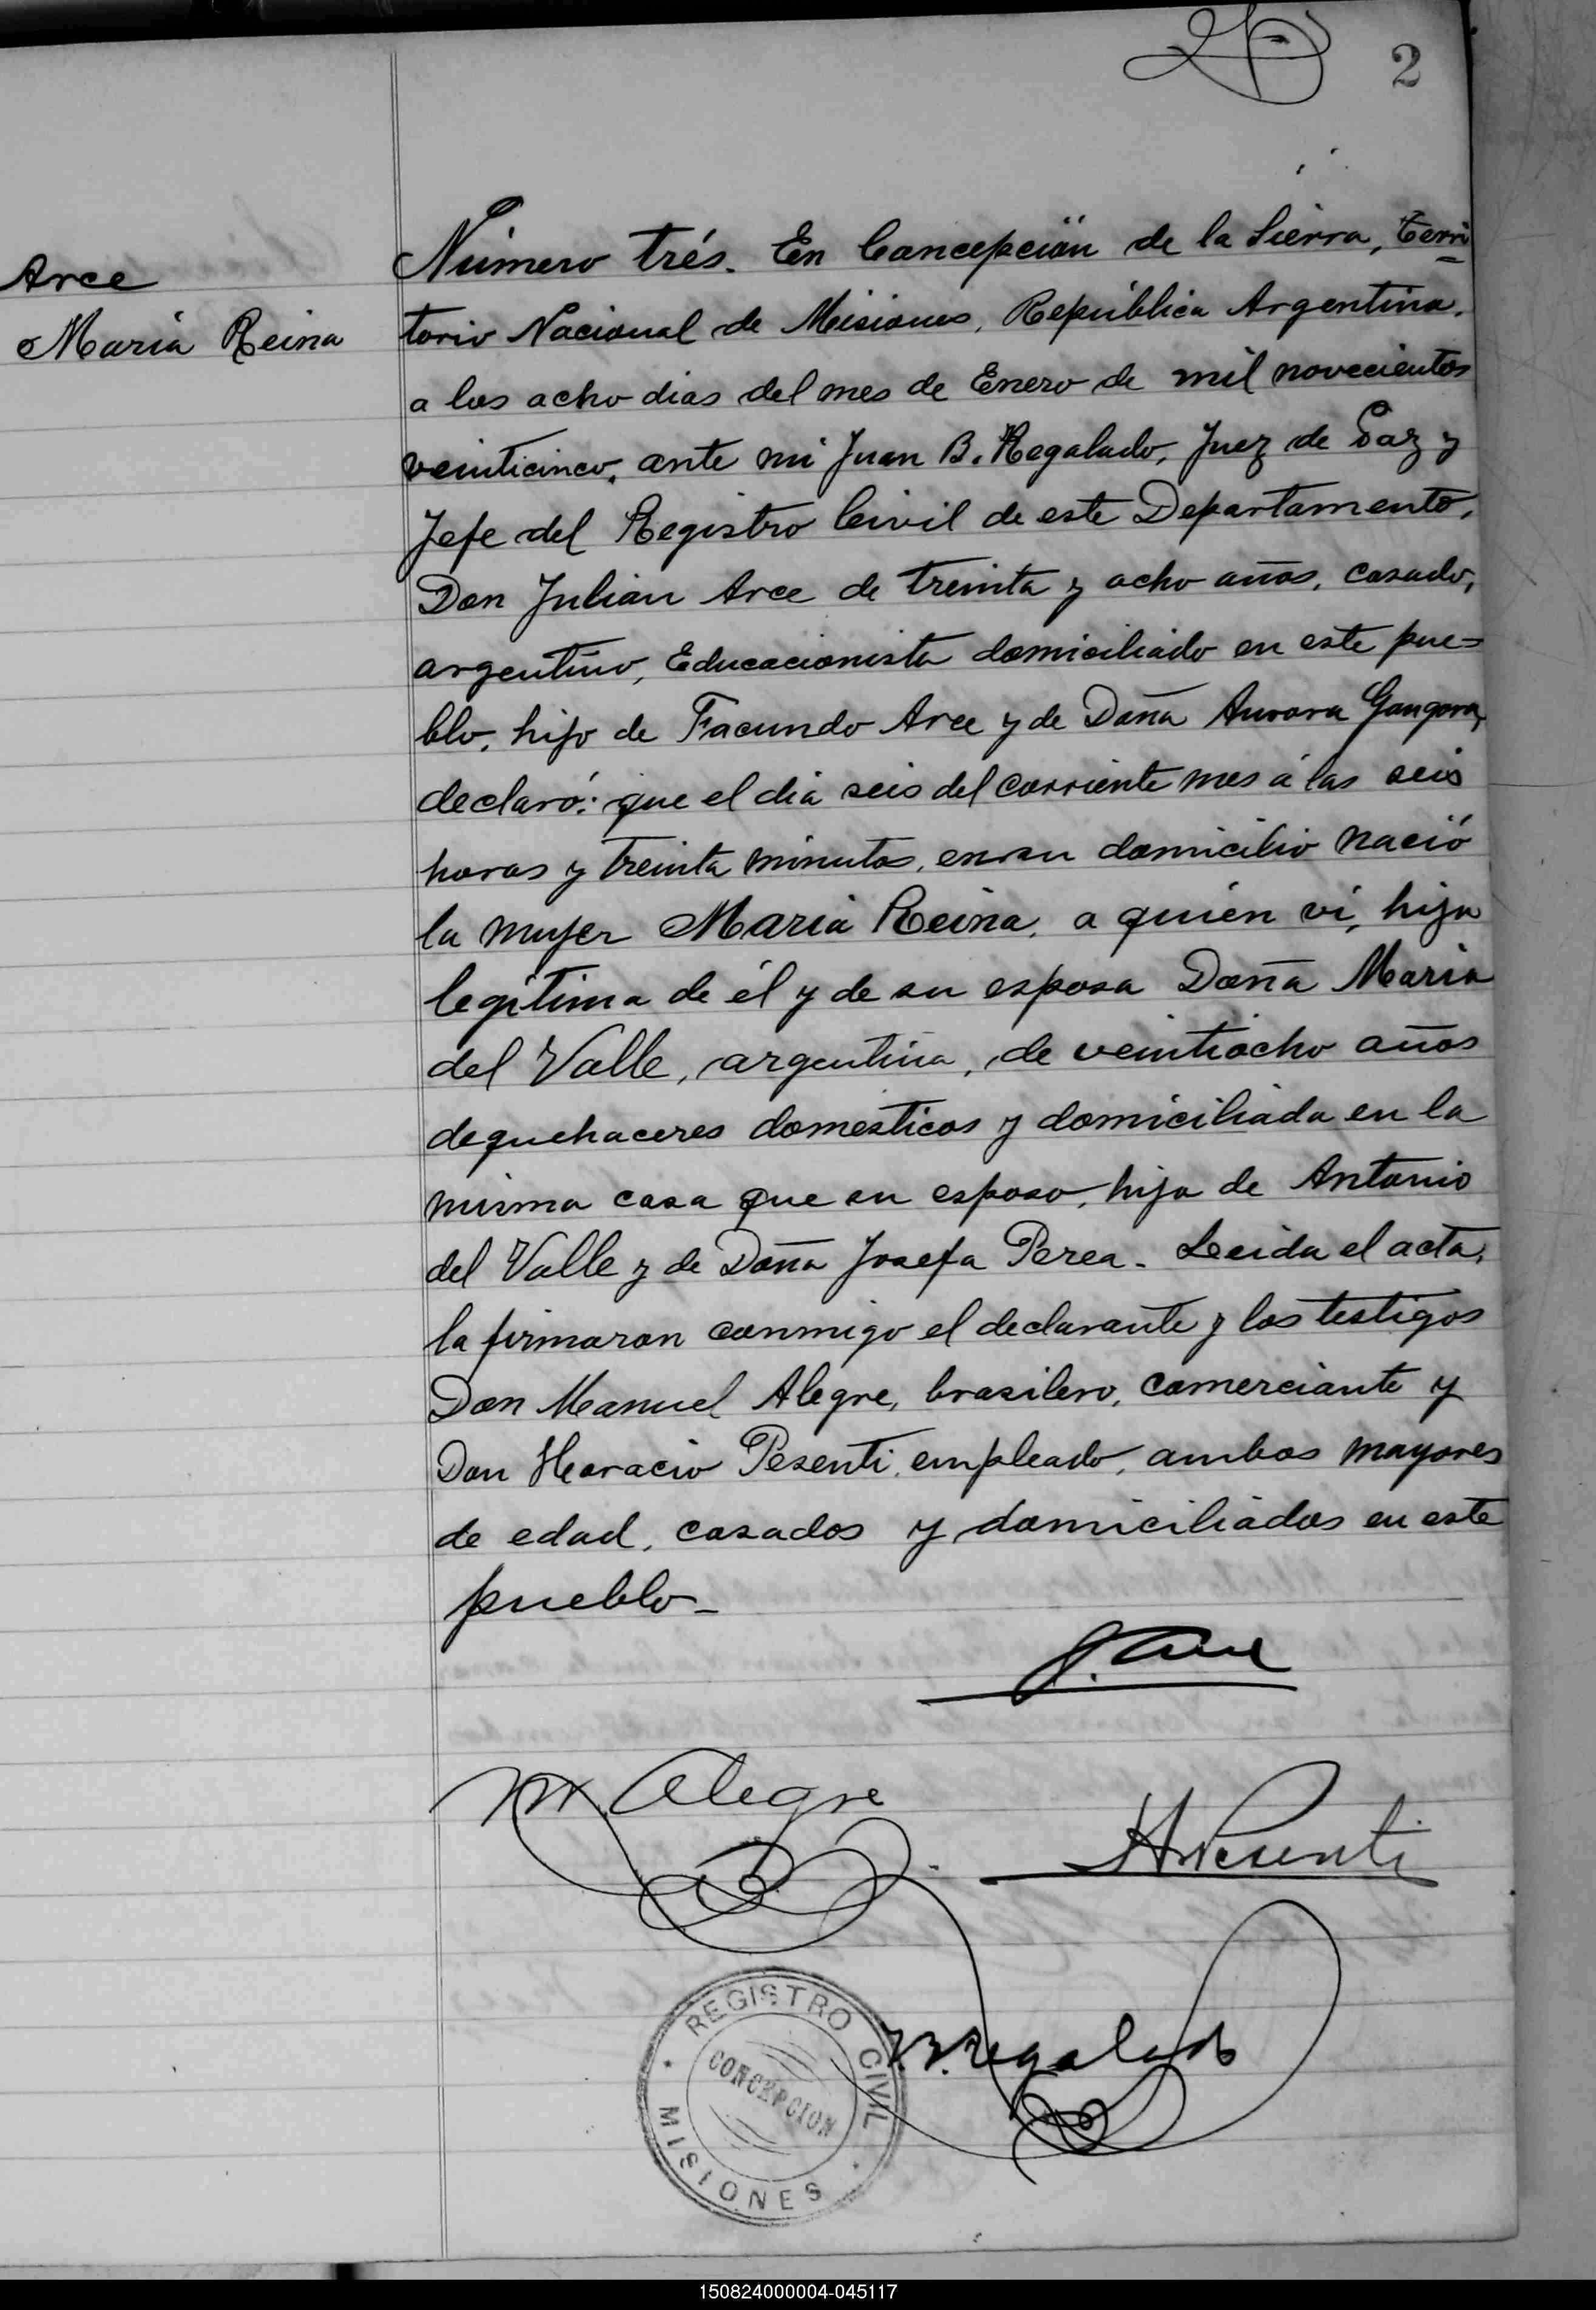 2
Arce
Maria Reina
Número trés. En Concepción de la Sierra, Terri=
torio Nacional de Misiones, República Argentina,
a los ocho dias del mes de Enero de mil novecientos
veinticinco, ante mi Juan B. Regalado, Juez de Paz y
Jefe del Registro Civil de este Departamento,
Don Julian Arce de treinta y ocho años, casado,
argentino, Educacionista domiciliado en este pue=
blo, hijo de Facundo Arce y de Doña Aurora Gongora,
declaró: que el dia seis del corriente mes á las seis
horas y treinta minutos, en su domicilio nació
la mujer Maria Reina, a quien vi, hija
legitima de él y de su esposa Doña Maria
del Valle, argentina, de veintiocho años
de quehaceres domesticos y domiciliada en la
misma casa que su esposo, hija de Antonio
del Valle y de Doña Josefa Perea. Leida el acta,
la firmaron conmigo el declarante y los testigos
Don Manuel Alegre, brasilero, comerciante y
Don Horacio Pesenti, empleado, ambos mayores
de edad, casados y domiciliados en este
pueblo_
J. Arce
M. Alegre
H Pesenti
J.B. Regalado
REGISTRO CIVIL
CONCEPCION
MISIONES
150824000004-045117